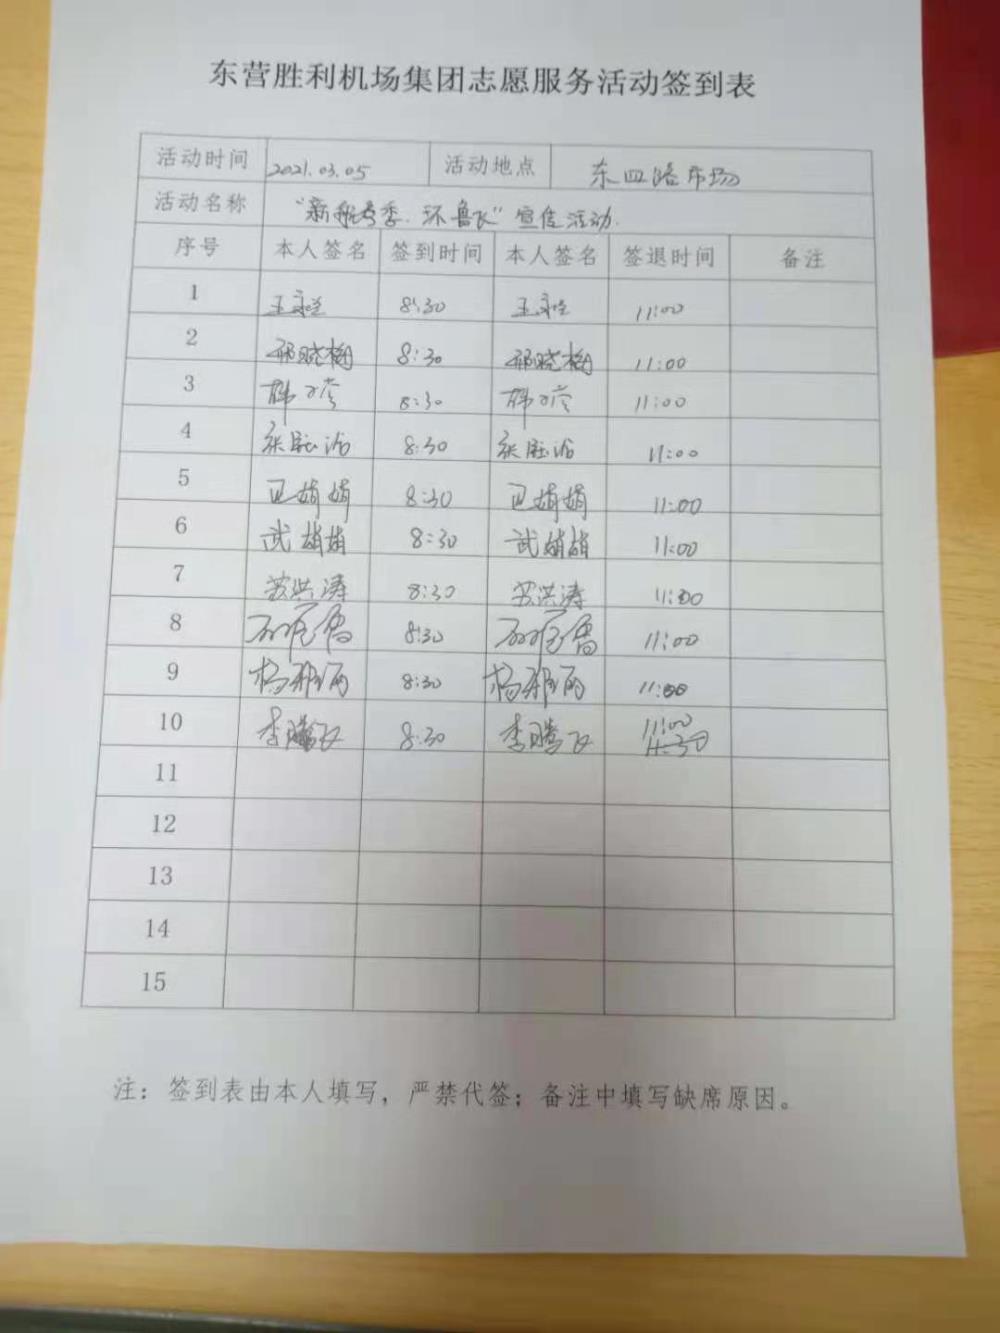 东营胜利机场集团志愿服务活动签到表
活动时间 2021.03.05 活动地点 东四路市场
活动名称 “新航季.环鲁飞”宣传活动.
序号 本人签名 签到时间 本人签名 签退时间 备注
1 8:30 11:00
2 邢晓梅 8:30 邢晓梅 11:00
3 8:30 11:00
4 8:30 11:00
5 卫娟娟 8:30 卫娟娟 11:00
6 武娟娟 8:30 武娟娟 11:00
7 苏洪涛 8:30 苏洪涛 11:00
8 8:30 11:00
9 杨雅雨 8:30 杨雅雨 11:00
10 李腾飞 8:30 李腾飞 11:00
11
12
13
14
15
注：签到表由本人填写，严禁代签；备注中填写缺席原因。